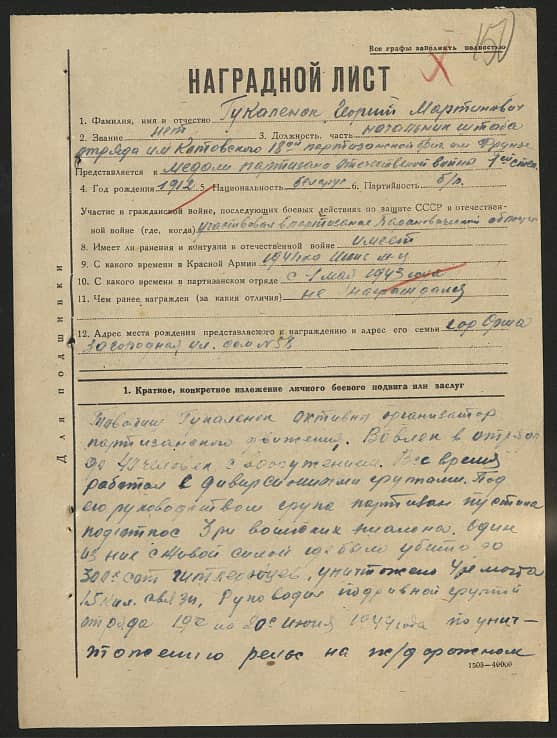 150
Все графы заполнять полностью
НАГРАДНОЙ ЛИСТ
1. Фамилия, имя и отчество Гукаленок Георгий Мартинович
2. Звание нет 3. Должность, часть начальник штаба
отряда им Котовского 18ой партизанской бриг. им Фрунзе
Представляется к медали партизана отечественной войны 1ой степ.
4. Год рождения 1912 5. Национальность белорус 6. Партийность б/п.
Участие в гражданской войне, последующих боевых действиях по защите СССР и отечествен-
ной войне (где, когда) участвовал в партизанах Барановической области
8. Имеет ли ранения и контузии в отечественной войне имеет
9. С какого времени в Красной Армии 1941го июнь м-ц
10. С какого времени в партизанском отряде с 1 мая 1943 года
11. Чем ранее награжден (за какия отличия) не награждался
12. Адрес места рождения представляемого к награждению и адрес его семьи гор Орша
Загородная ул. дом №58
Для подшивки
1. Краткое, конкретное изложение личного боевого подвига или заслуг
Товарищ Гукаленок активный организатор
партизанского движения. Вовлек в отряд
до 40 человек с вооружением. Все время
работал с диверсионными группами. Под
его руководством група партизан пустила
под откос три воинских эшалона. Один
из них с живой силой где было убито до
300 сот гитлеровцев, уничтожено 4ре моста
1,5 кил. связи, Руководил подрывной группой
отряда 19го на 20е июня 1944 года по унич-
тожению рельс на ж/дорожном
1503—40000